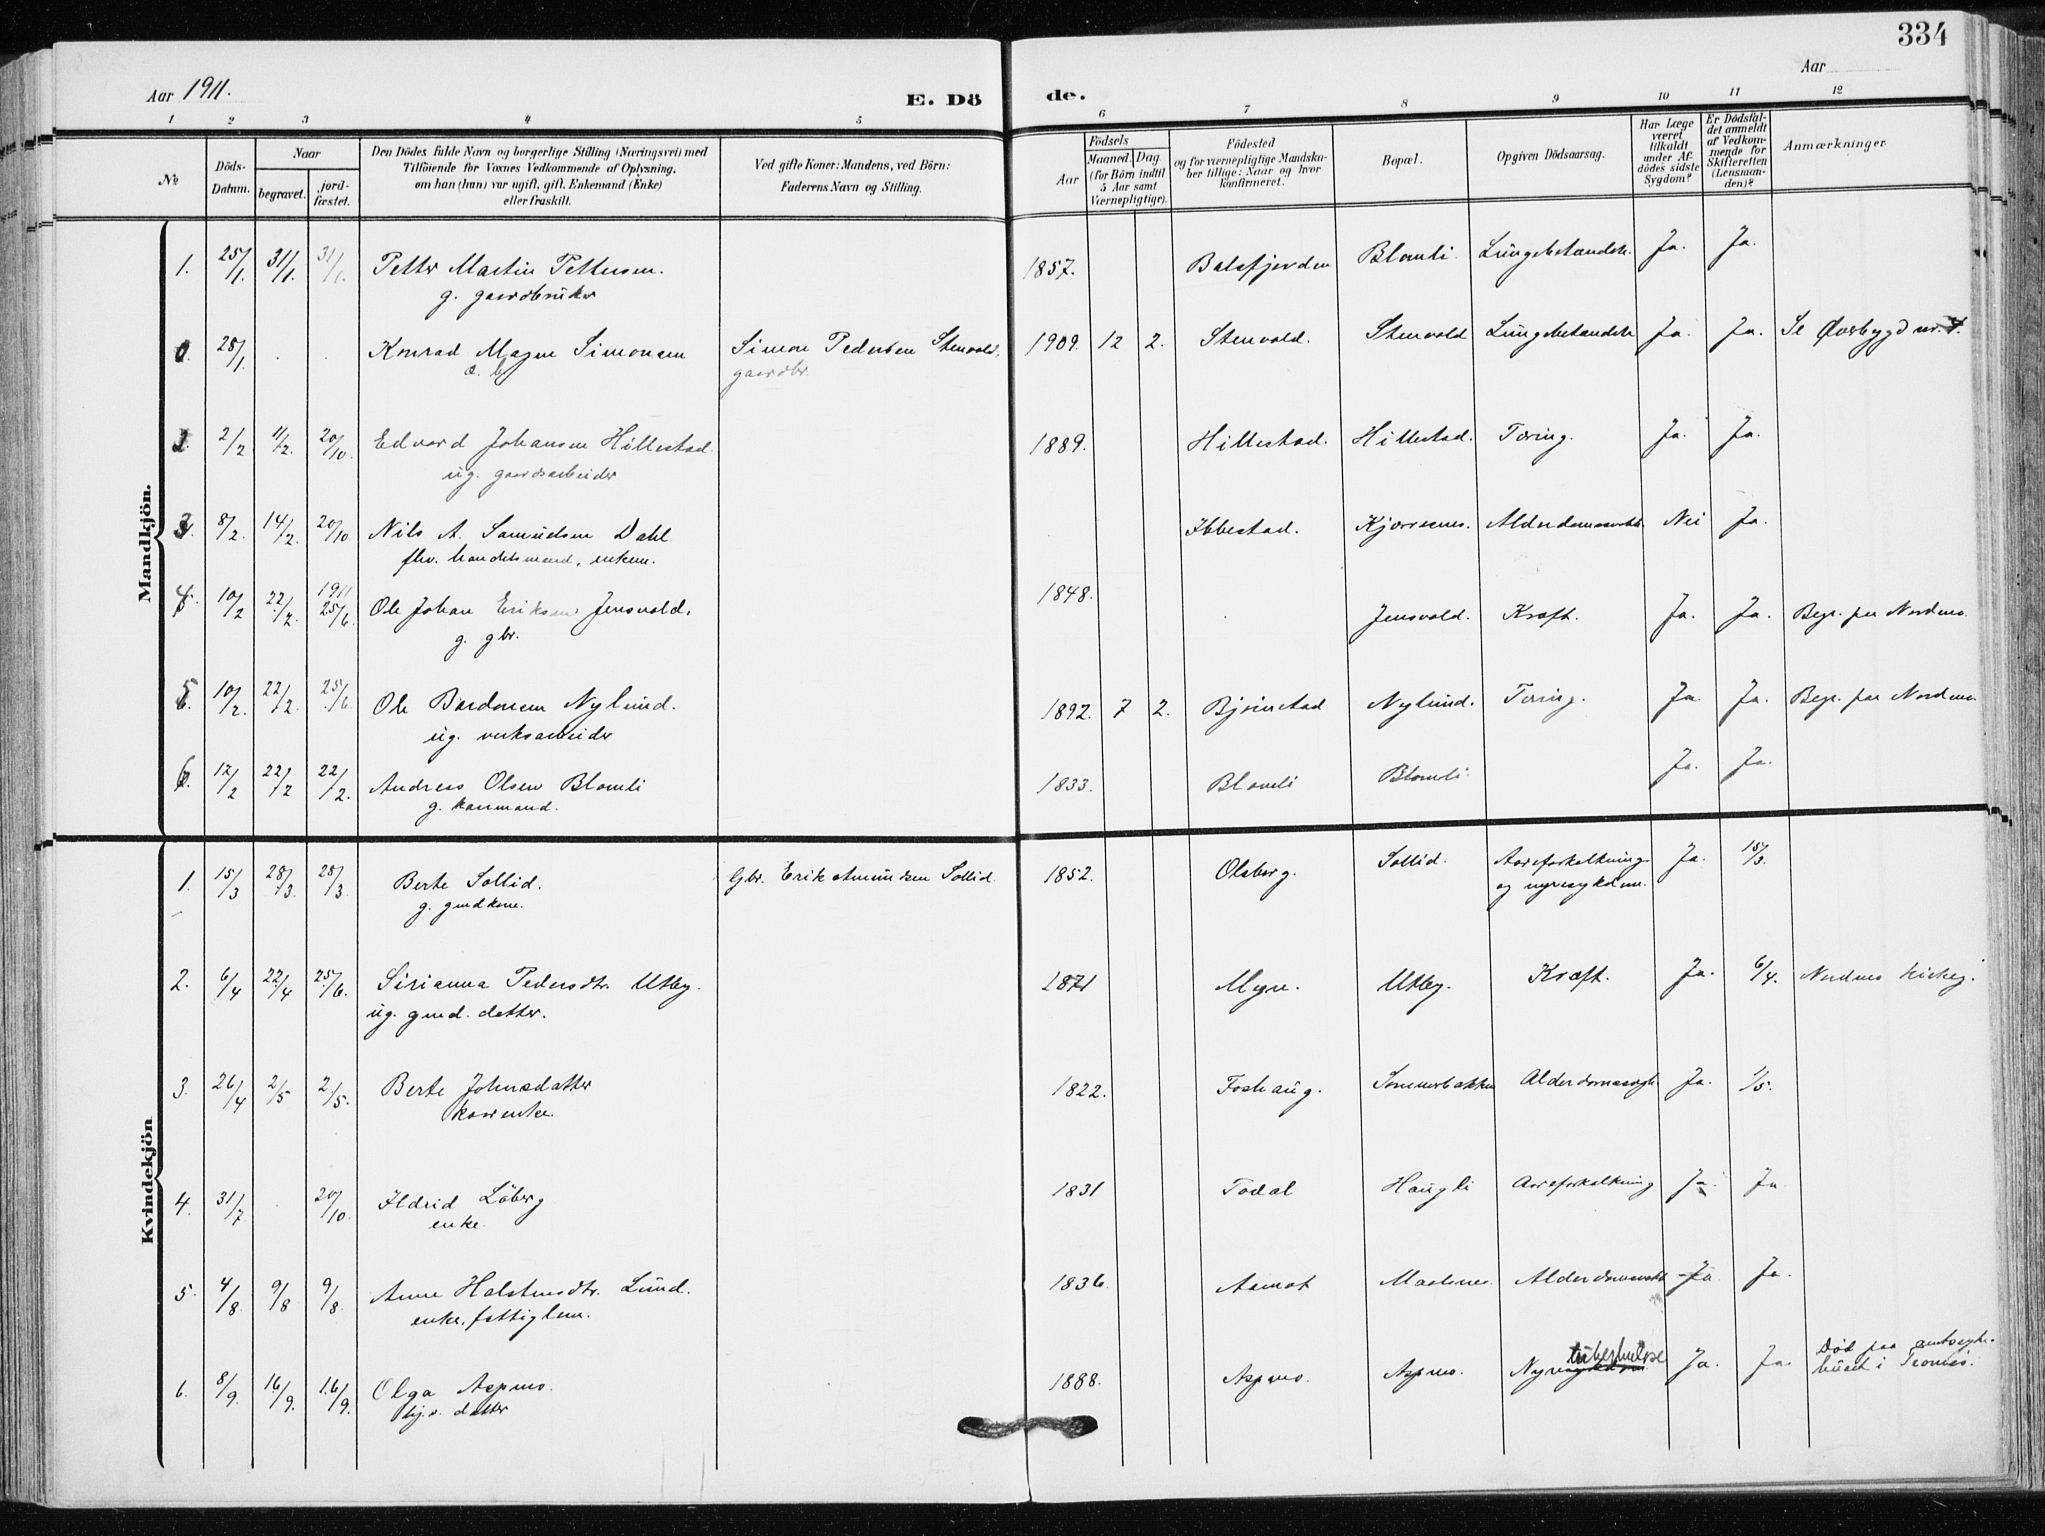 334
Aar 1911.
E. Dö
de.
Aar
1 2 3 4 5 6 7 8 9 10 11 12
No
Döds-Datum.
Naar
begravet.
jord-fæstet.
Den Dödes fulde Navn og borgerlige Stilling (Næringsvei) med
Tilföiende for Voxnes Vedkommende af Oplysning,
om han (hun) var ugift, gift, Enkemand (Enke)
eller fraskilt.
Ved gifte Koner: Mandens, ved Börn:
Faderens Navn og Stilling.
Födsels
Aar
Maaned. Dag
(for Börn indtil
5 Aar samt
Værnepligtige).
Födested
og for værnepligtige Mandska-
ber tillige: Naar og hvor
konfirmeret.
Bopæl.
Opgiven Dödsaarsag.
Har Læge
været
tilkaldt
under Af-
dödes sidste
Sygdom?
Er Dödsfal-
det anmeldt
af Vedkom-
mende for
Skifteretten
(Lensman-
den)?
Anmærkninger.
Mandkjön.
1. 25/1. 31/1. 31/1. Petter Martin Pettersen. 1857. Balsfjorden Blomli. Lungebetændels. Ja. Ja.
g. gaardbruker
28/1. Konrad Magne Simonsen Simon Pedersen Stenvold, 1909. 12 2. Stenvold. Stenvold Lungebetændels Ja. Ja. Se Øverbygd nr.
gaardbr.
2/2 11/2. 20/10. Edvard Johansen Hillestad. 1889. Hillestad. Hillestad. Tæring. Ja. Ja.
ug. gaardsarbeider
3. 8/2. 14/2. 20/10 Nils A. Samuelsen Dahl Ibbestad. Kjærresnes. Alderdomssvakh. Nei Ja.
fhv. handelsmand, enkem.
4. 10/2 22/2. 1911 25/6. Ole Johan Eriksen Jensvold. 1848. Jensvold. Kræft. Ja. Ja. Begr. paa Nordmo.
g. gbr.
5. 10/2. 22/2. 25/6. Ole Bardosen Nylund. 1892. 7 2. Bjørnstad Nylund. Tæring. Ja. Ja. Begr. paa Nordmo.
ug. verksarbeider
6. 12/2 22/2 22/2. Andreas Olsen Blomli 1833. Blomli Blomli. Ja. Ja.
g. kaarmand.
Kvindekjön
1. 15/3 28/3. 28/3. Berte Sollid. Gbr. Erik Amundsen Sollid. 1852. Olsborg. Sollid. Aareforkalkning Ja. 15/3.
g. gmdkone. og nyresykdom.
2. 6/4 22/4 25/6. Sirianna Pedersdtr. Utby. 1871 Myre. Utby. Kræft. Ja. 6/4. Nordmo kirkeg.
ug. gmd. datter.
3. 26/4 2/5 2/5. Berte Johnsdatter 1822. Foshaug. Sommerbakken Alderdomssvgh. Ja. 1/5.
kaarenke.
4. 31/7 20/10. Ildrid Løberg 1831 Todal Haugli Aareforkalkning Ja. Ja.
enke.
5. 4/8. 9/8 9/8. Anne Halstensdtr. Lund. 1836. Aamot Maalsnes. Alderdomssvakh. Ja. Ja.
enke, fattiglem.
tuberkulose
6. 8/9. 16/9. 16/9. Olga Aspmo. 1888. Aspmo. Aspmo. Nyresykdom Ja. Ja. Død paa amtssyke-
datter huset i Tromsø.